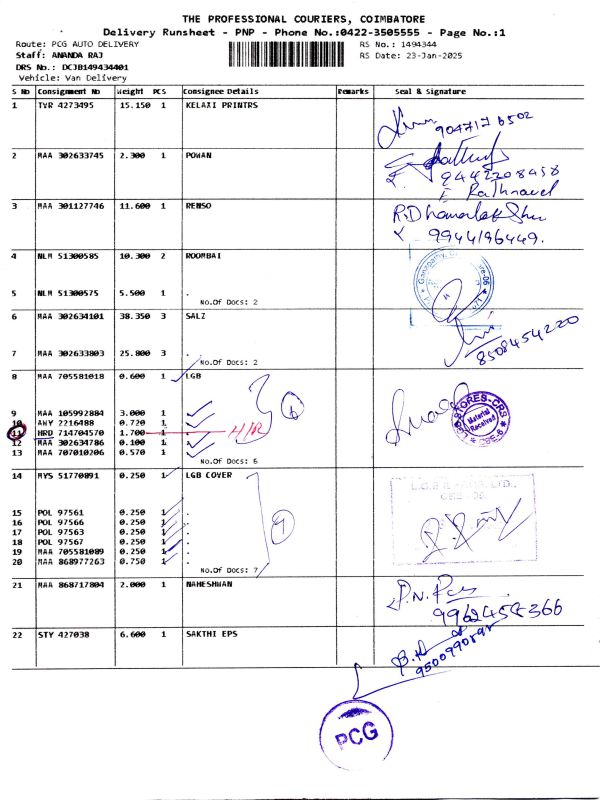 THE PROFESSIONAL COURIERS, COIMBATORE
Delivery Runsheet - PNP - Phone No.:0422-3505555 - Page No.:1
Route: PCG AUTO DELIVERY
RS No.: 1494344
Staff: ANANDA RAJ
RS Date: 23-Jan-2025
DRS No.: DCJB149434401
Vehicle: Van Delivery
S No Consignment No Weight PCS Consignee Details Remarks Seal & Signature
1 TYR 4273495 15.150 1 KELAXI PRINTRS
9047176502
2 MAA 302633745 2.300 1 POWAN
9442208458
E Rathnavel
3 MAA 301127746 11.600 1 RENSO
9944196449.
4 NLM 51300585 10.300 2 ROOMBAI
5 NLM 51300575 5.500 1 .
No.Of Docs: 2
6 MAA 302634101 38.350 3 SALZ
8508454220
7 MAA 302633803 25.800 3 .
No.Of Docs: 2
8 MAA 705581018 0.600 1 LGB
9 MAA 105992884 3.000 1 .
10 ANY 2216488 0.720 1 .
11 HRD 714704570 1.700 1 . H/R
12 MAA 302634786 0.100 1 .
13 MAA 707010206 0.570 1 .
No.Of Docs: 6
6
STORES-CRS
Material
Received
CBE-6
14 MYS 51770891 0.250 1 LGB COVER
15 POL 97561 0.250 1 .
16 POL 97566 0.250 1 .
17 POL 97563 0.250 1 .
18 POL 97567 0.250 1 .
19 MAA 705581089 0.250 1 .
20 MAA 868977263 0.750 1 .
No.Of Docs: 7
7
21 MAA 868717804 2.000 1 MAHESHWAN
9962454366
22 STY 427038 6.600 1 SAKTHI EPS
PCG